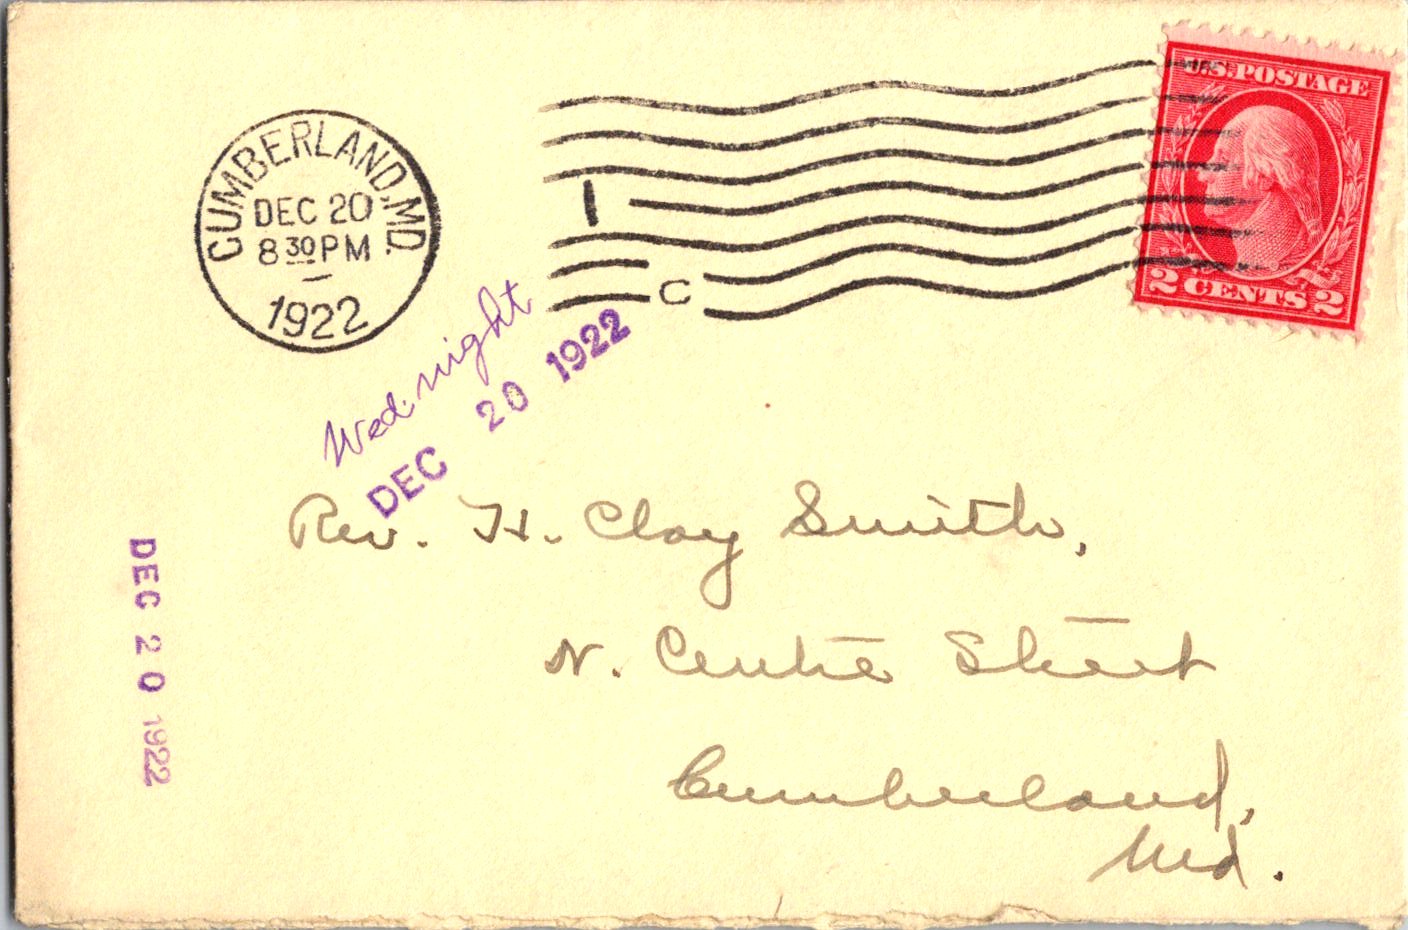 U.S. POSTAGE
2 CENTS 2
CUMBERLAND, MD.
DEC 20
8 30 PM
1922
1
C
Wed. night
DEC 20 1922
Rev. H. Clay Smith,
N. Centre Street
Cumberland,
Md.
DEC 20 1922